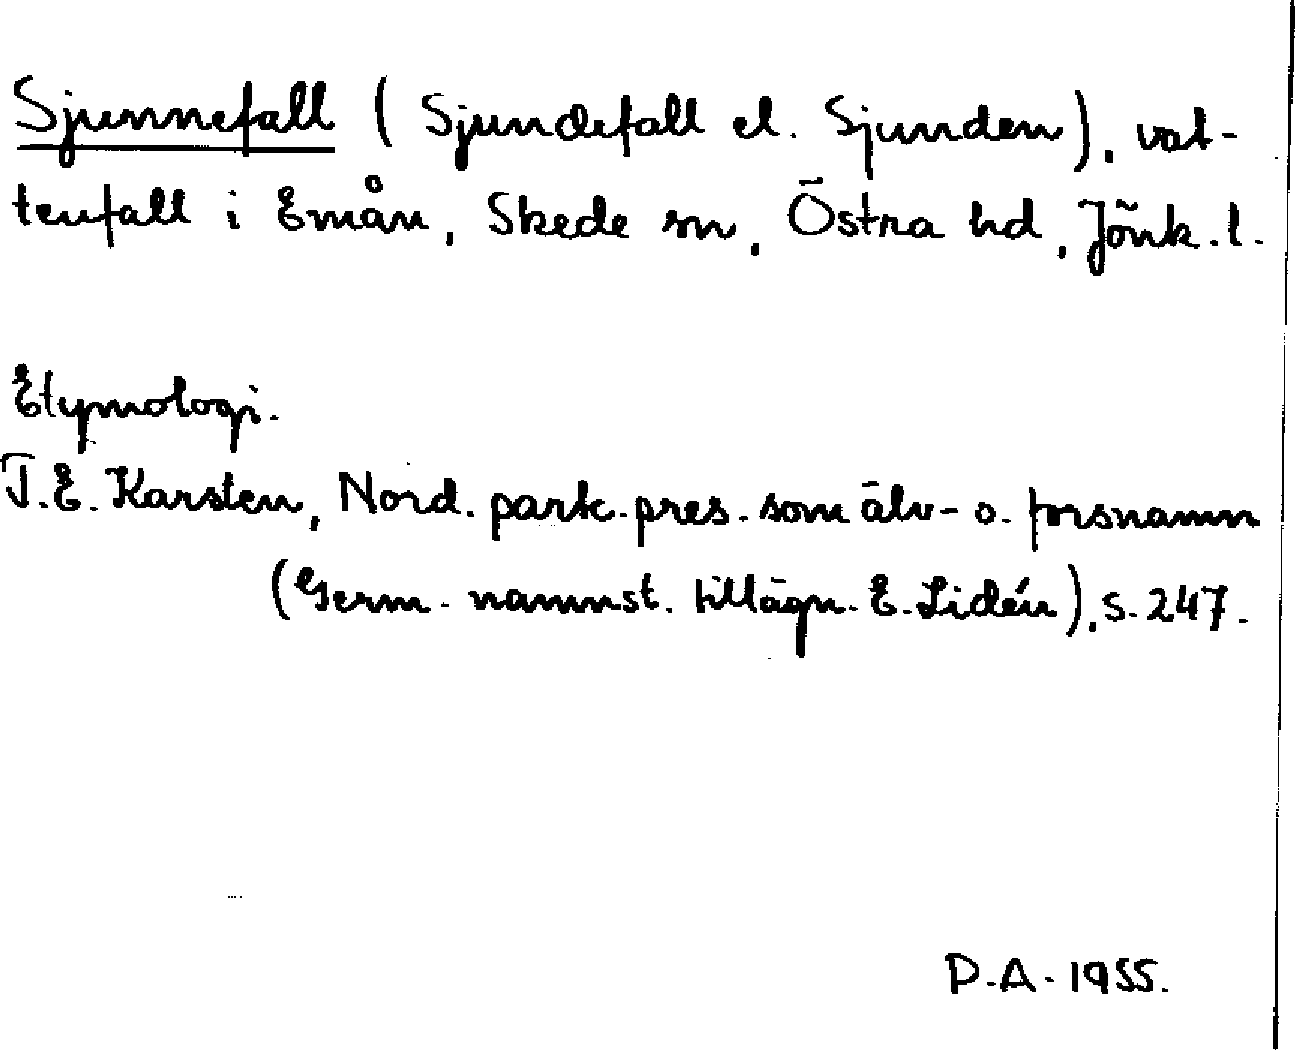 Sjunnefall (Sjundefall el. Sjunden), vat-
tenfall i Emån, Skede sn, Östra hd, Jönk. l.
Etymologi.
T. E. Karsten, Nord. partc. pres. som älv- o. forsnamn
(Germ. namnst. tillägn. E. Lidén), s. 247.
P. A. 1955.